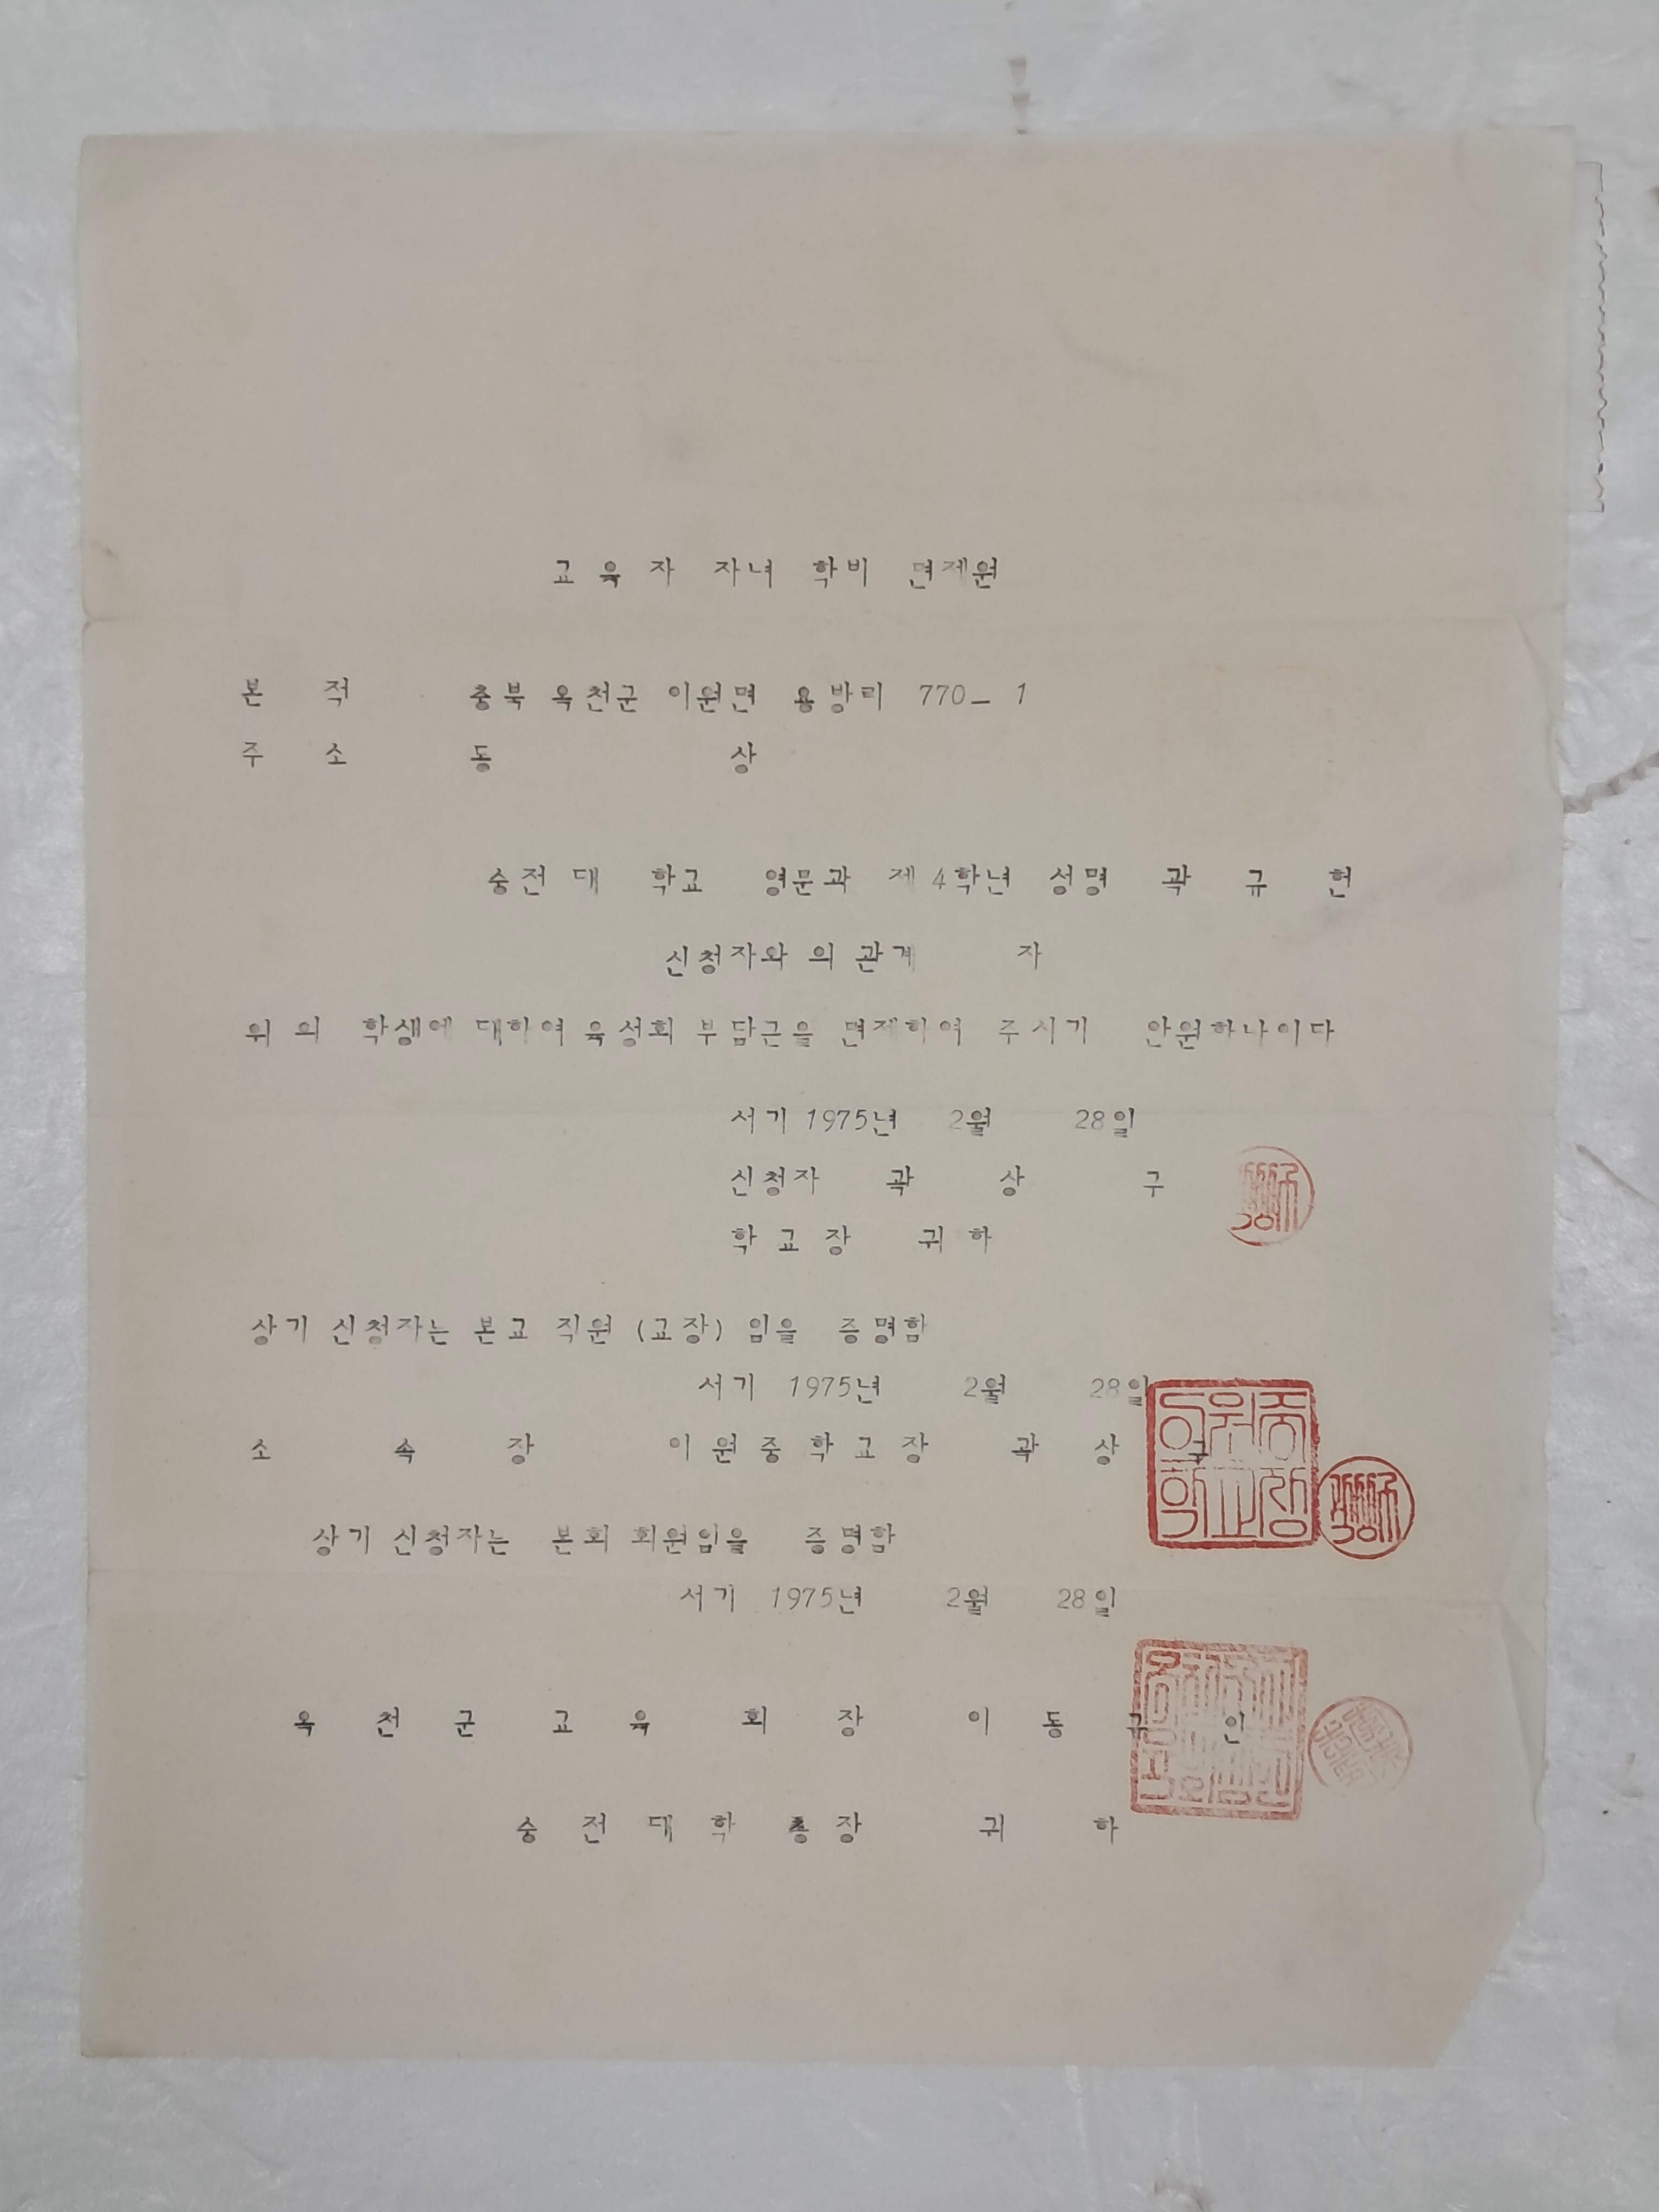 교 육 자 자녀 학비 면제원
본 적 충북 옥천군 이원면 용방리 770_ 1
주 소 동 상
숭전 대 학교 영문과 제 4학년 성명 곽 규 헌
신청자와 의 관계 자
위 의 학생에 대하여 육성회 부담금을 면제하여 주시기 안원하나이다
서기 1975년 2월 28일
신청자 곽 상 구
학 교 장 귀 하
상기 신청자는 본교 직원 (교장) 임을 증명함
서기 1975년 2월 28일
소 속 장 이 원 중 학 교 장 곽 상 구
이원중학교장
상기 신청자는 본회 회원임을 증명함
서기 1975년 2월 28일
옥 천 군 교 육 회 장 이 동 규 인
숭 전 대 학 총 장 귀 하